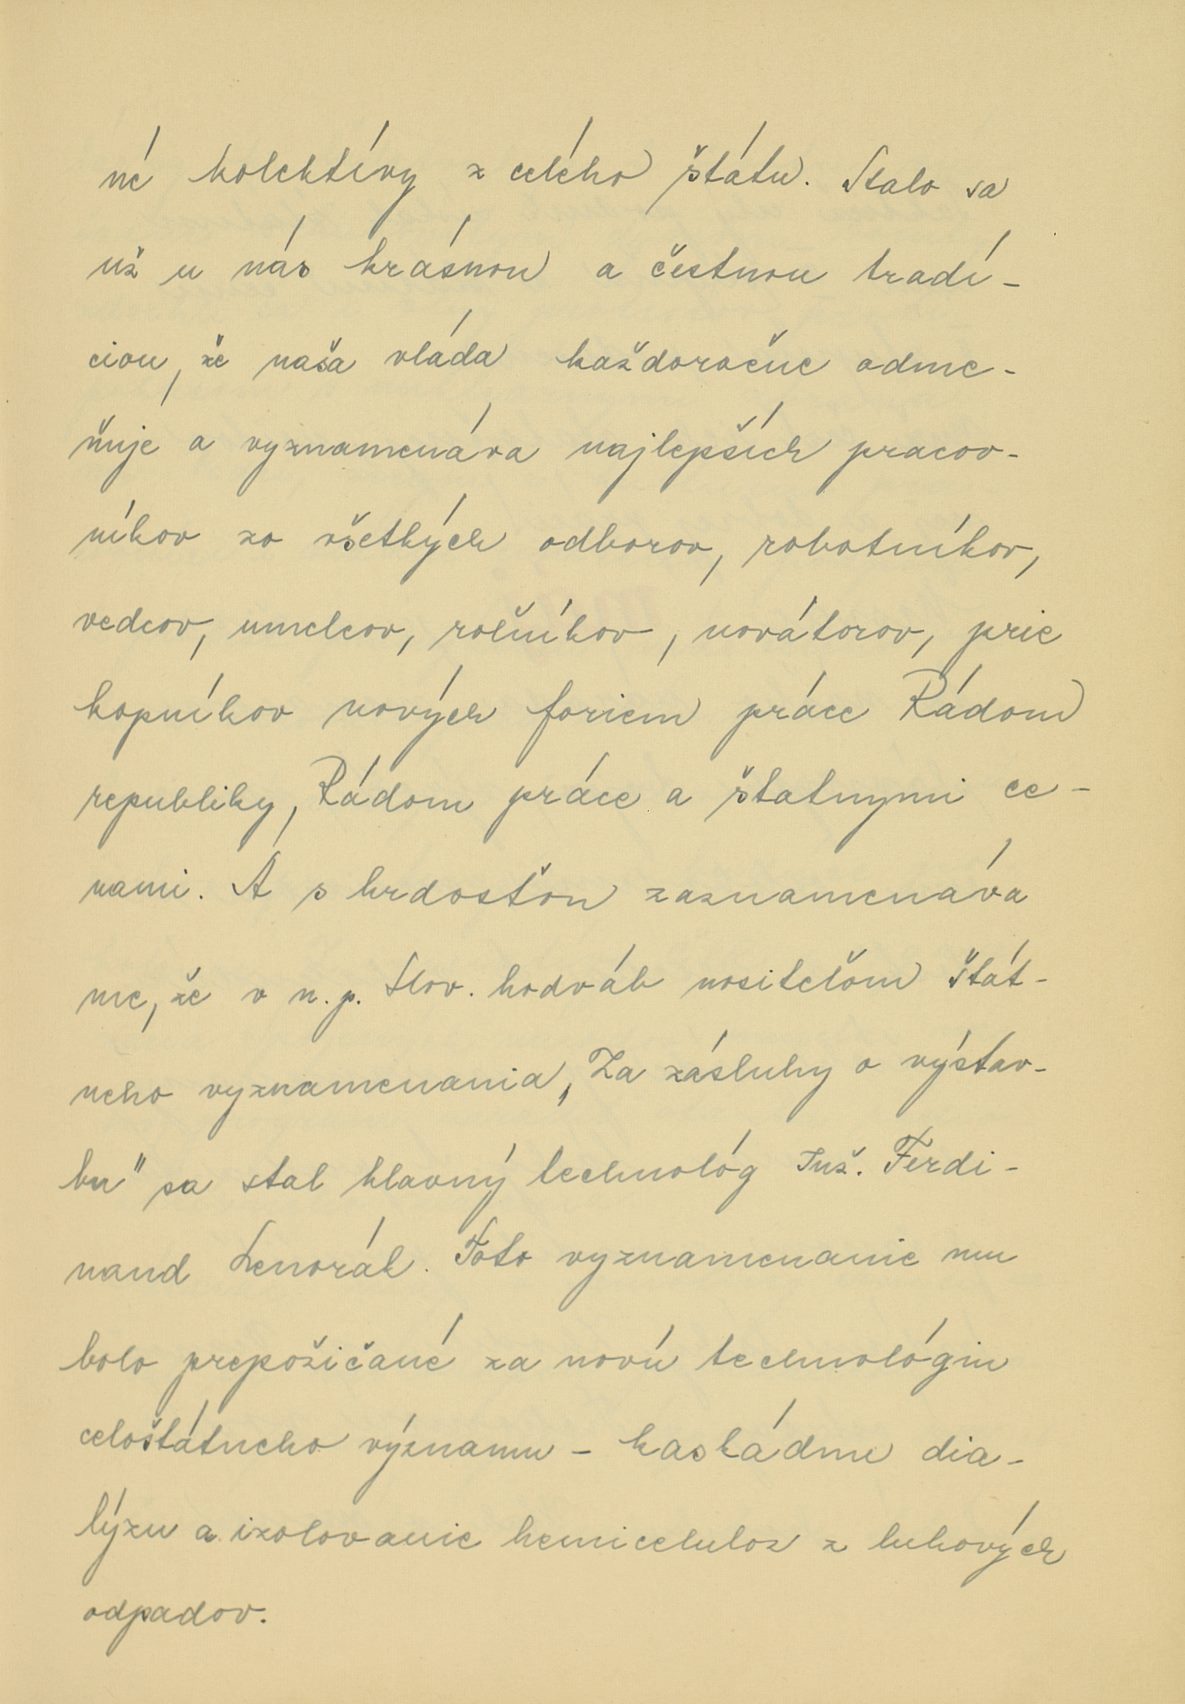 né kolektívy z celého štátu. Stalo sa
už u nás krásnou a čestnou tradí-
ciou, že naša vláda každoročne odme-
ňuje a vyznamenáva najlepších pracov-
níkov zo všetkých odborov, robotníkov,
vedcov, umelcov, roľníkov, novátorov, prie
kopníkov nových foriem práce Rádom
republiky, Rádom práce a štatnymi ce-
nami. A s hrdosťou zaznamenáva
me, že v n. p. Slov. hodváb nositeľom štát-
neho vyznamenania „Za zásluhy o výstav-
bu" sa stal hlavný technológ Inž. Ferdi-
nand . Toto vyznamenanie mu
bolo prepožičané za novú technológiu
celoštátneho významu - kaskádnu dia-
lýzu a izolovanie hemicelulos z luhových
odpadov.